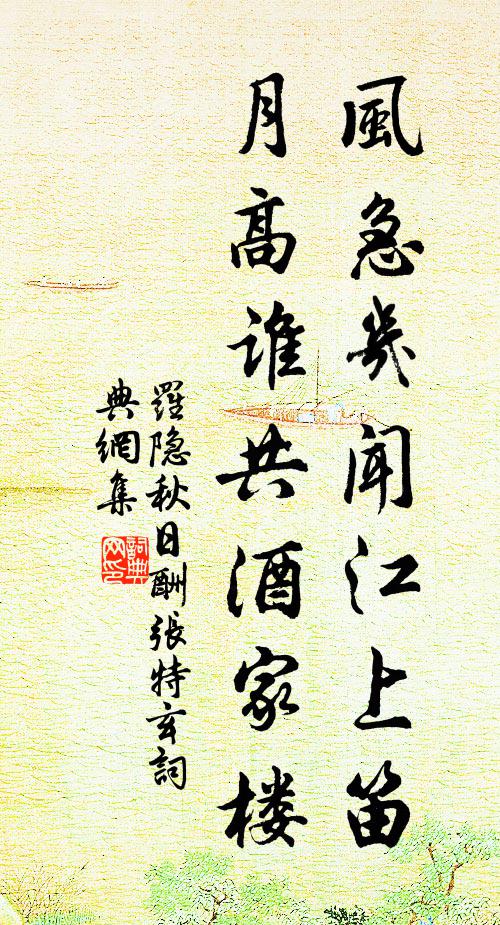 風急幾聞江上笛
月高誰共酒家楼
羅隐秋日酬張特玄詞
典網集
詞典
网印